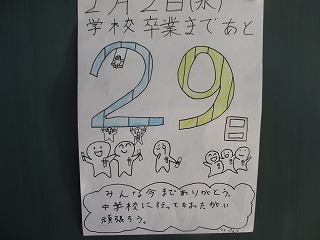 2月2日(水)
学校卒業まであと
29日
みんな今までありがとう。
中学校に行ってもおたがい
頑張ろう。